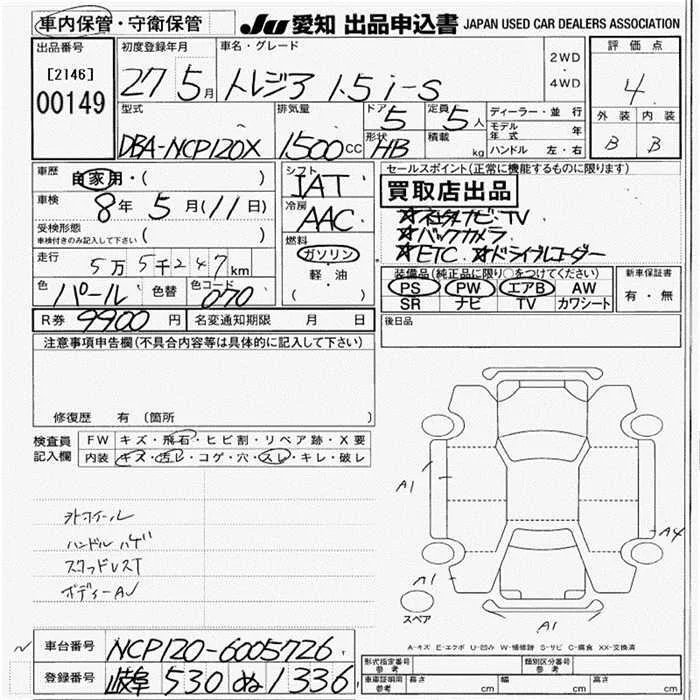 車内保管・守衛保管 JU 愛知 出品申込書 JAPAN USED CAR DEALERS ASSOCIATION
出品番号 初度登録年月 車名・グレード 評価点
[2146] 27 5月 トレジア 1.5 i-S 2WD・4WD 4
00149
型式 排気量 ドア 5 定員 5人 ディーラー・並行 外装 内装
モデル年式 年
DBA-NCP120X 1500CC 形状 HB 積載 kg ハンドル 左・右 B B
車歴 自家用・( ) シフト IAT セールスポイント(正常に機能するものに限ります)
買取店出品
車検 8年 5月(11日) 冷房 AAC ☆社外ナビ・TV
受検形態 ( ) ☆バックカメラ
車検付きのみ記入して下さい 燃料 ☆ETC ☆ドライブレコーダー
走行 5万5千247km ガソリン・軽・油 ( )
装備品(純正品に限り○をつけてください) 新車保証書
色 パール 色替 色コード 070 PS PW エアB AW 有・無
SR ナビ TV カワシート
R券 9900円 名変通知期限 月 日 後日品
注意事項申告欄(不具合内容等は具体的に記入して下さい)
修復歴 有 〔箇所 〕
検査員 FW キズ・飛石・ヒビ割・リペア跡・X要
記入欄 内装 キズ・汚レ・コゲ・穴・スレ・キレ・破レ
外ホイール
ハンドルハゲ
スタッドレスT
A1
A4
A1
スペア
A1
A-キズ E-エクボ U-凹み W-補修跡 S-サビ C-腐食 XX-交換済
車台番号 NCP120-6005726
登録番号 岐阜 530 ぬ 1336
形式指定番号 参考 類別区分番号 参考
車庫証明用 参考 長さ cm 幅 cm 高さ cm